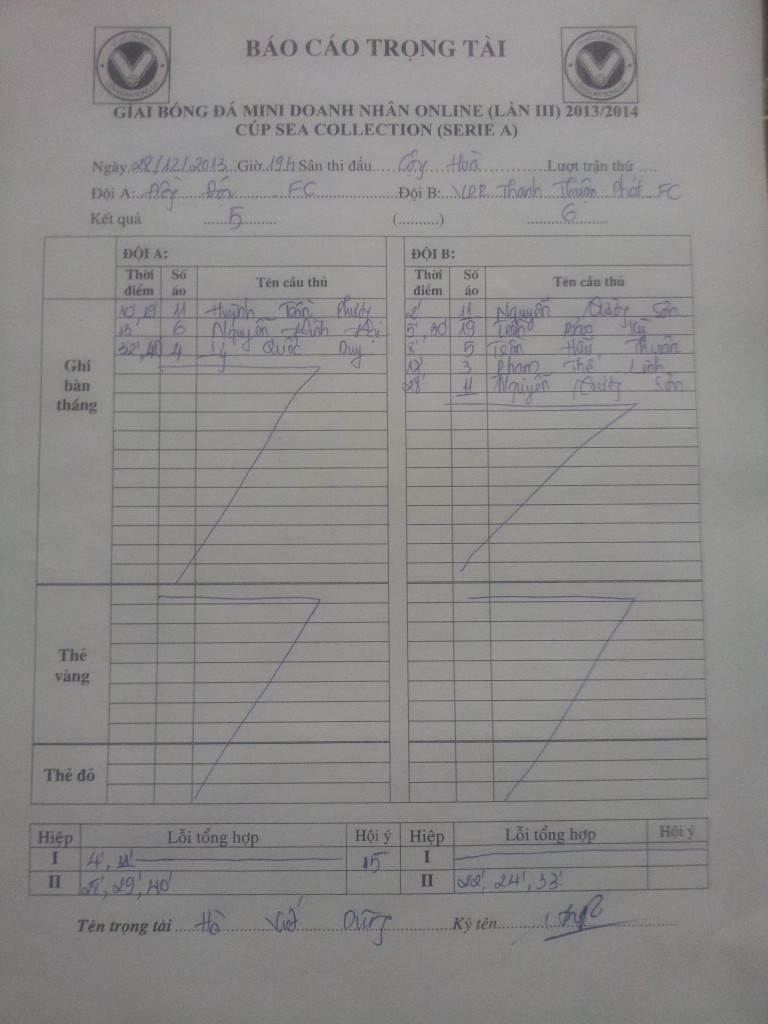 BÁO CÁO TRỌNG TÀI
GIẢI BÓNG ĐÁ MINI DOANH NHÂN ONLINE (LẦN III) 2013/2014
CÚP SEA COLLECTION (SERIE A)
Ngày 28/12/2013 Giờ 19h Sân thi đấu Cộng Hoà Lượt trận thứ
Đội A: FC Đội B: Thanh Thuận Phát FC
Kết quả 5 (..........) 6
ĐỘI A: ĐỘI B:
Thời điểm Số áo Tên cầu thủ Thời điểm Số áo Tên cầu thủ
Ghi bàn thắng
10', 19' 11 Huỳnh Tấn 2' 11 Nguyễn Sơn
13' 6 Nguyễn 5', 30' 19 Trần Kỳ
32', 40' 4 Lý Quốc Duy 8' 5 Trần Hữu Thuận
17' 3 Phạm Thế Linh
28' 11 Nguyễn Sơn
Thẻ vàng
Thẻ đỏ
Hiệp Lỗi tổng hợp Hội ý Hiệp Lỗi tổng hợp Hội ý
I 4', 11' 15' I
II 21', 29', 40' II 22', 24', 33'
Tên trọng tài Hà Việt Dũng Ký tên